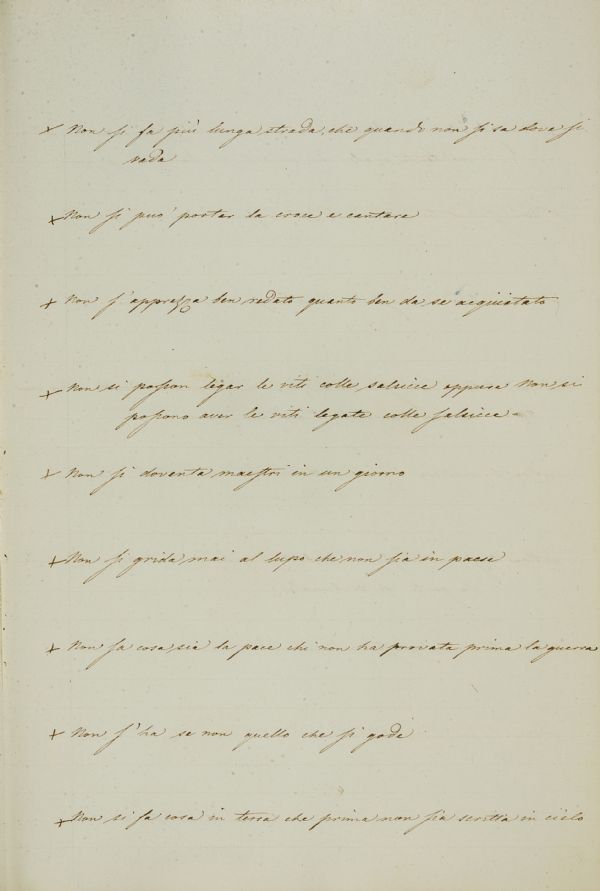 × Non si fa più lunga strada, che quando non si sa dove si
vada
× Non si può portar la croce e cantare
× Non s'apprezza ben redato quanto ben da se acquistato
× Non si posson legar le viti colle salsicce oppure Non si
possono aver le viti legate colle salsicce
× Non si doventa maestri in un giorno
× Non si grida mai al lupo che non sia in paese
× Non sa cosa sia la pace chi non ha provata prima la guerra
× Non s'ha se non quello che si gode
× Non si fa cosa in terra che prima non sia scritta in cielo